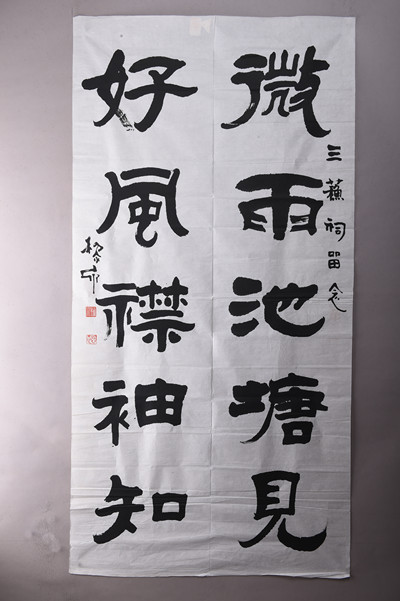 微雨池塘見
三蘇祠留念
好風襟袖知